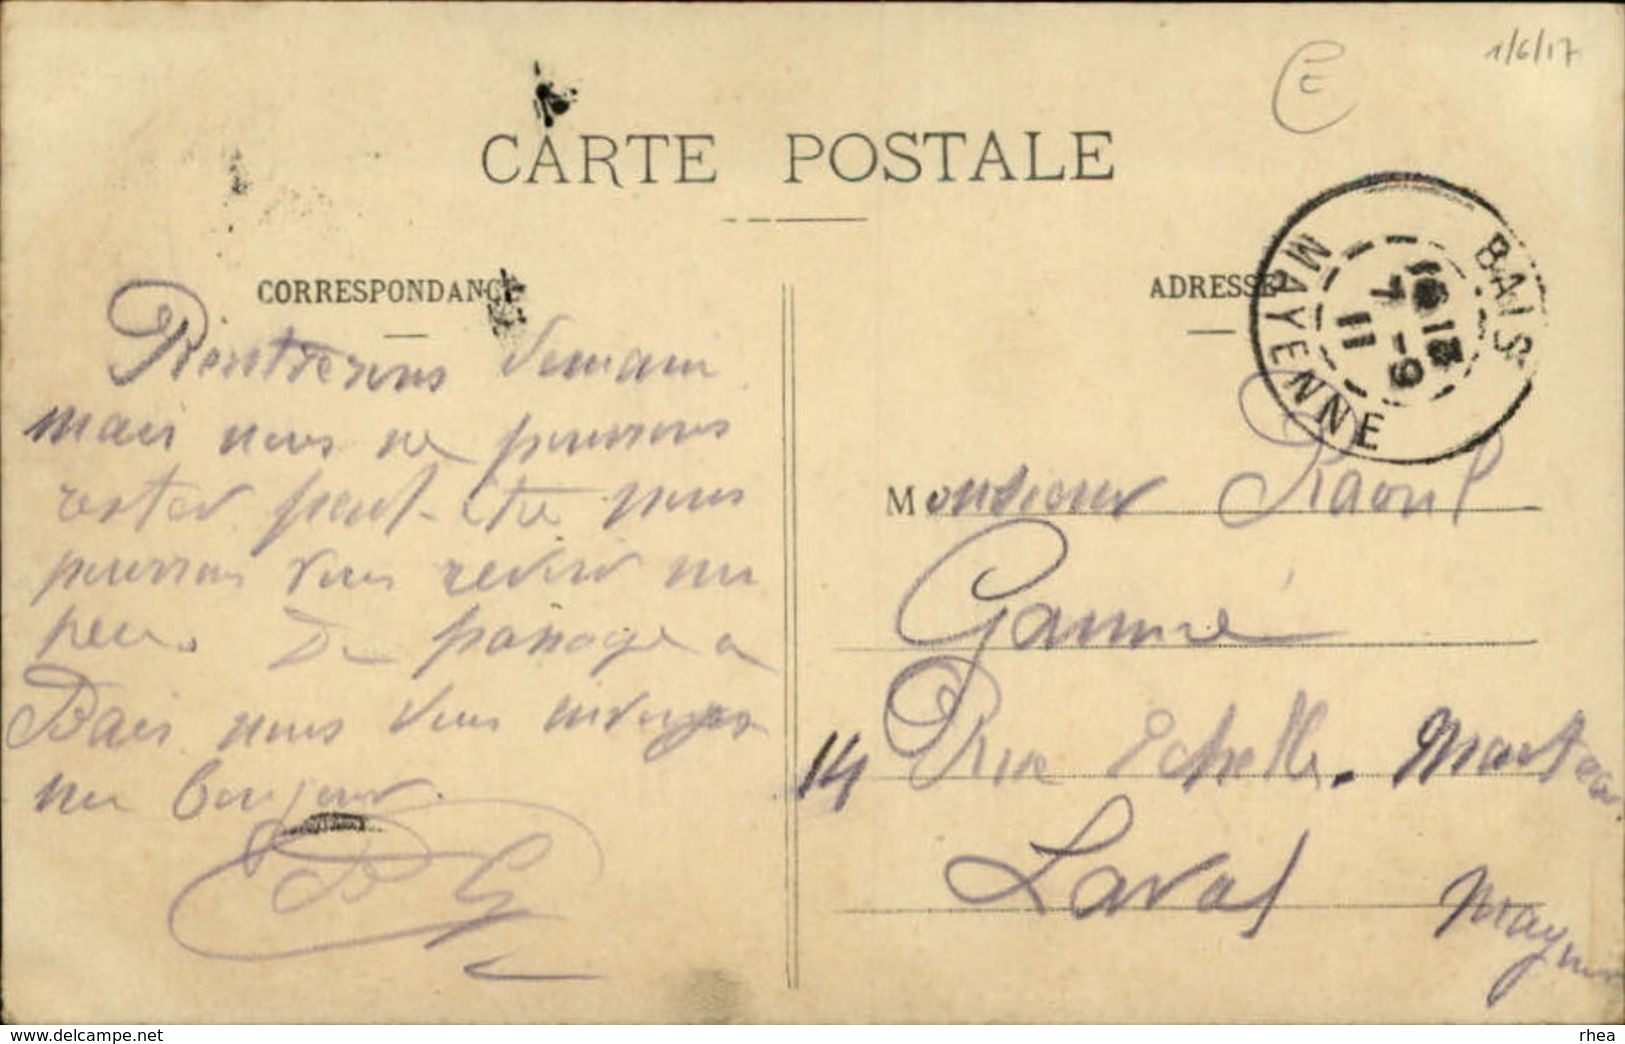 1/6/17
E
CARTE POSTALE
CORRESPONDANCE
ADRESSE
BAIS
7 - 9
11
MAYENNE
Rentrerons demain
mais nous ne pourrons
rester peut-être nous
pourrons vous revoir un
peu. De passage a
Bais nous vous envoyons
un bonjour.
Monsieur Raoul
Gamné
14 Rue Echelle-Marteau
Laval Mayenne
www.delcampe.net
rhea